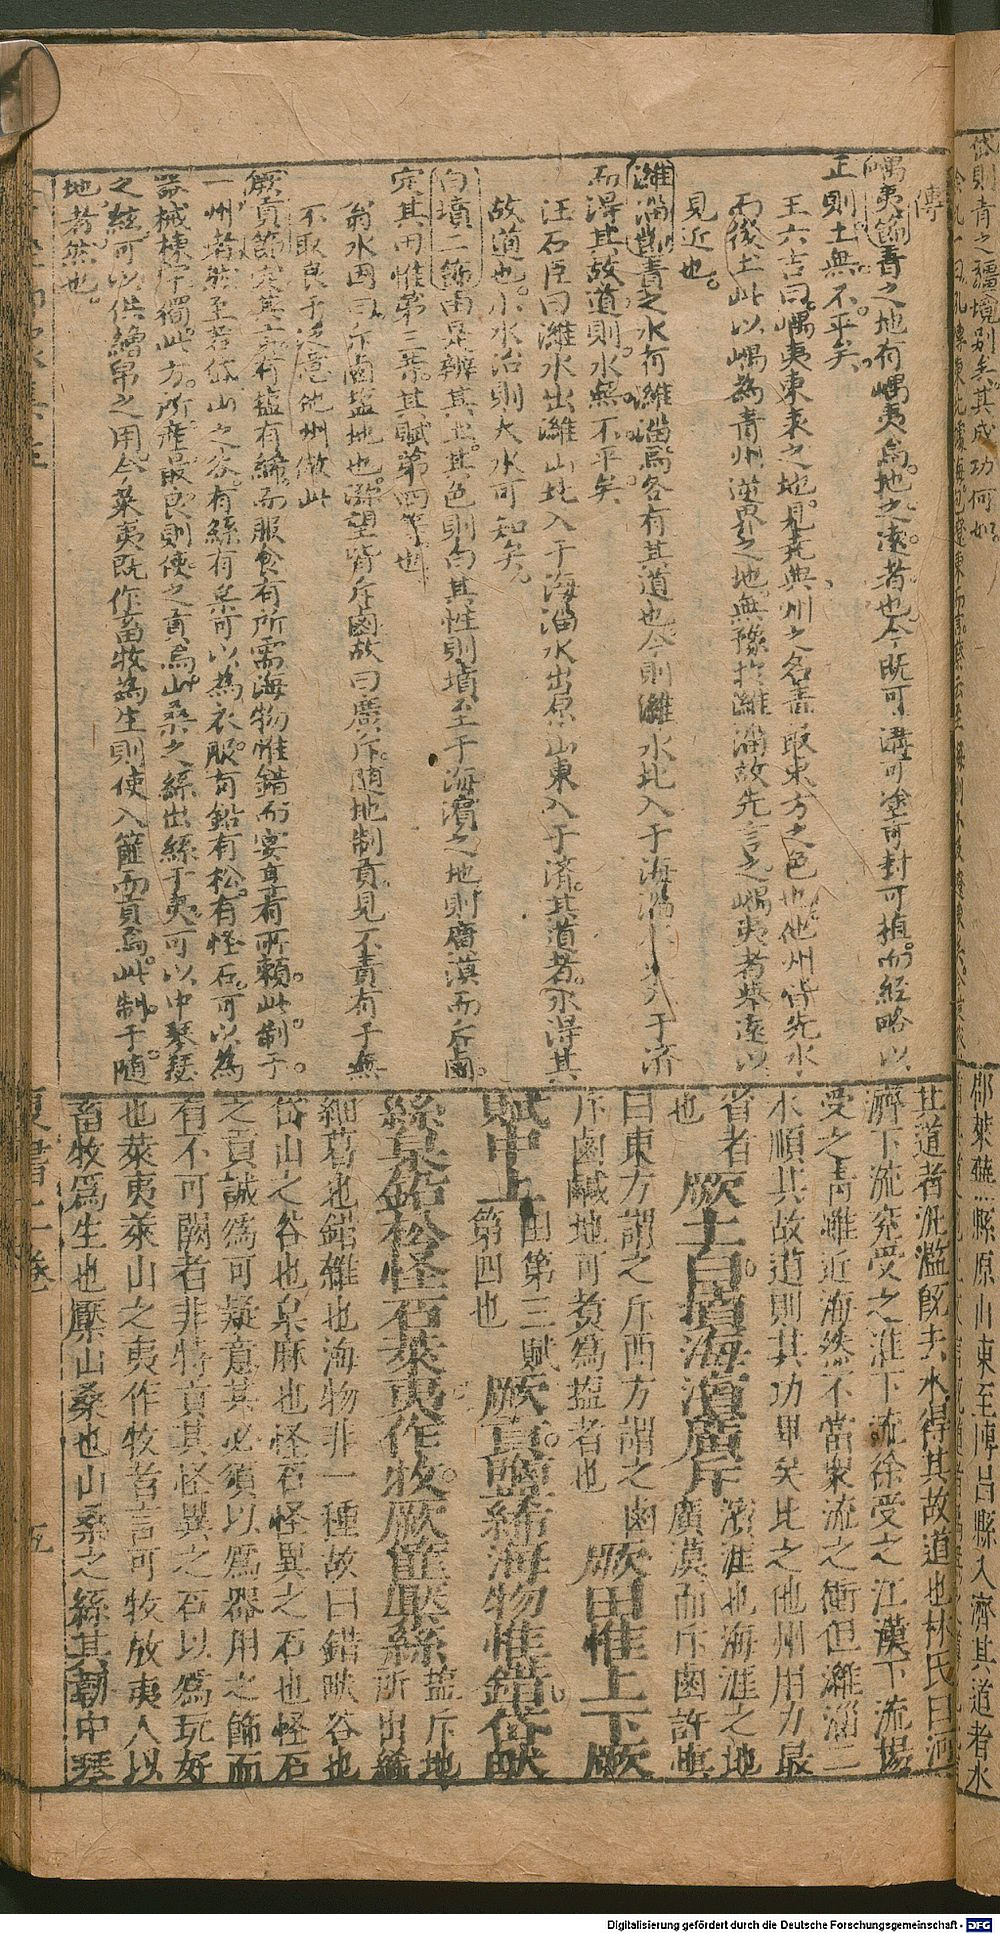 傳
嵎夷節青之地有嵎夷焉地之遠者也今既可溝可塗可封可植而經略以
正則土無不平矣
王六吉曰嵎夷東表之地見堯典州之名青取東方之色也他州皆先水
而後土此以嵎為青州逆界之地無豫於濰淄故先言之嵎夷者舉遠以
見近也
濰淄節青之水有濰淄焉各有其道也今則濰水北入于海淄水 入于濟
而得其故道則水無不平矣
汪石臣曰濰水出濰山北入于海淄水出原山東入于濟其道者水得其
故道也小水治則大水可知矣
白墳二節由是辨其土其色則白其性則墳至于海濱之地則廣漠而斥鹵
定其田惟第三業其賦第四等也
翁水因曰斥鹵塩地也瀰望皆斥鹵故曰廣斥隨地制貢見不責有于無
不取良于 意他州倣此
厥貢節 其 有塩有絺而服食有所需海物惟錯而宴享有所賴此制于
一州者然至若岱山之谷有絲有枲可以為衣服有鉛有松有怪石可以為
器械棟宇獨此方所產最良則使之貢焉山桑之絲出絲于夷可以中琴瑟
之絃可以供繒帛之用今萊夷既作畜牧為生則使入篚而貢焉此制于隨
地者然也
其道者泛濫既去水得其故道也林氏曰河
濟下流兗受之淮下流徐受之江漢下流揚
受之青雖近海然不當衆流之衝但濰淄二
水順其故道則其功畢矣比之他州用力最
省者厥土白墳海濱廣斥濱涯也海涯之地
也 廣漠而斥鹵許慎
曰東方謂之斥西方謂之鹵厥田惟上下厥
斥鹵鹹地可煑為塩者也
賦中上田第三賦第四也厥貢鹽絺海物惟錯岱畎
絲枲鉛松怪石萊夷作牧厥篚檿絲塩斥地所出絺
細葛也錯雜也海物非一種故曰錯畎谷也
岱山之谷也枲麻也怪石怪異之石也怪石
之貢誠爲可疑意其必須以爲器用之飾而
有不可闕者非特貢其怪異之石以爲玩好
也萊夷萊山之夷作牧者言可牧放夷人以
畜牧爲生也檿山桑也山桑之絲其韌中琴
夏書二卷 五
岱則青之疆境别矣其成功何如
郡萊蕪縣原山東至博昌縣入濟其道者水
Digitalisierung gefördert durch die Deutsche Forschungsgemeinschaft - DFG